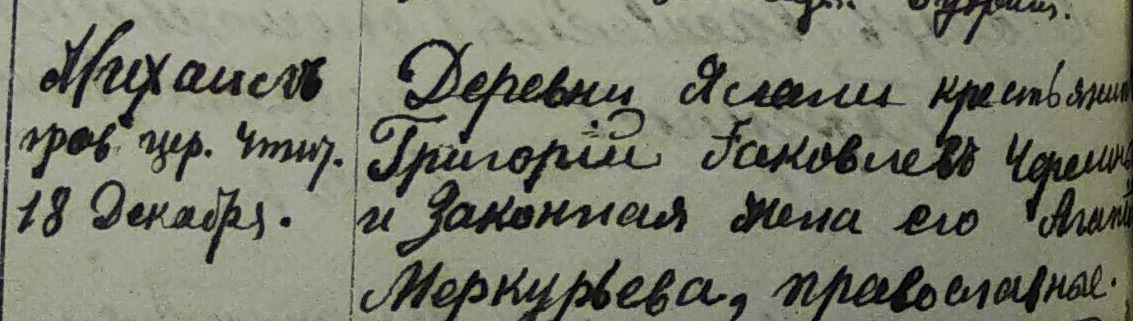 Михаилъ
прав. цер. чтит.
18 Декабря.
Деревни крестьянин
Григорій Іаковлевъ
и Законная жена его
Меркурьева, православные.